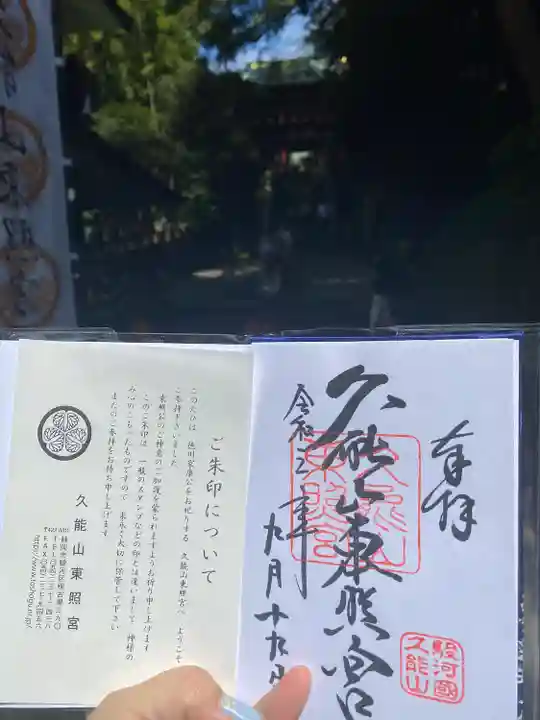 奉拝
久能山東照宮
令和三年
九月十九日
駿河國
久能山
ご朱印について
このたびは 徳川家康公をお祀りする 久能山東照宮へ ようこそ
ご参拝下さいました
東照公のご神意のご加護を蒙られますようお祈り申し上げます
このご朱印は 一般のスタンプなどの印とは違いまして 神様の
みこころのこもったものですので 末永く大切に御保管して下さい
またのご参拝をお待ち申し上げます
久能山東照宮